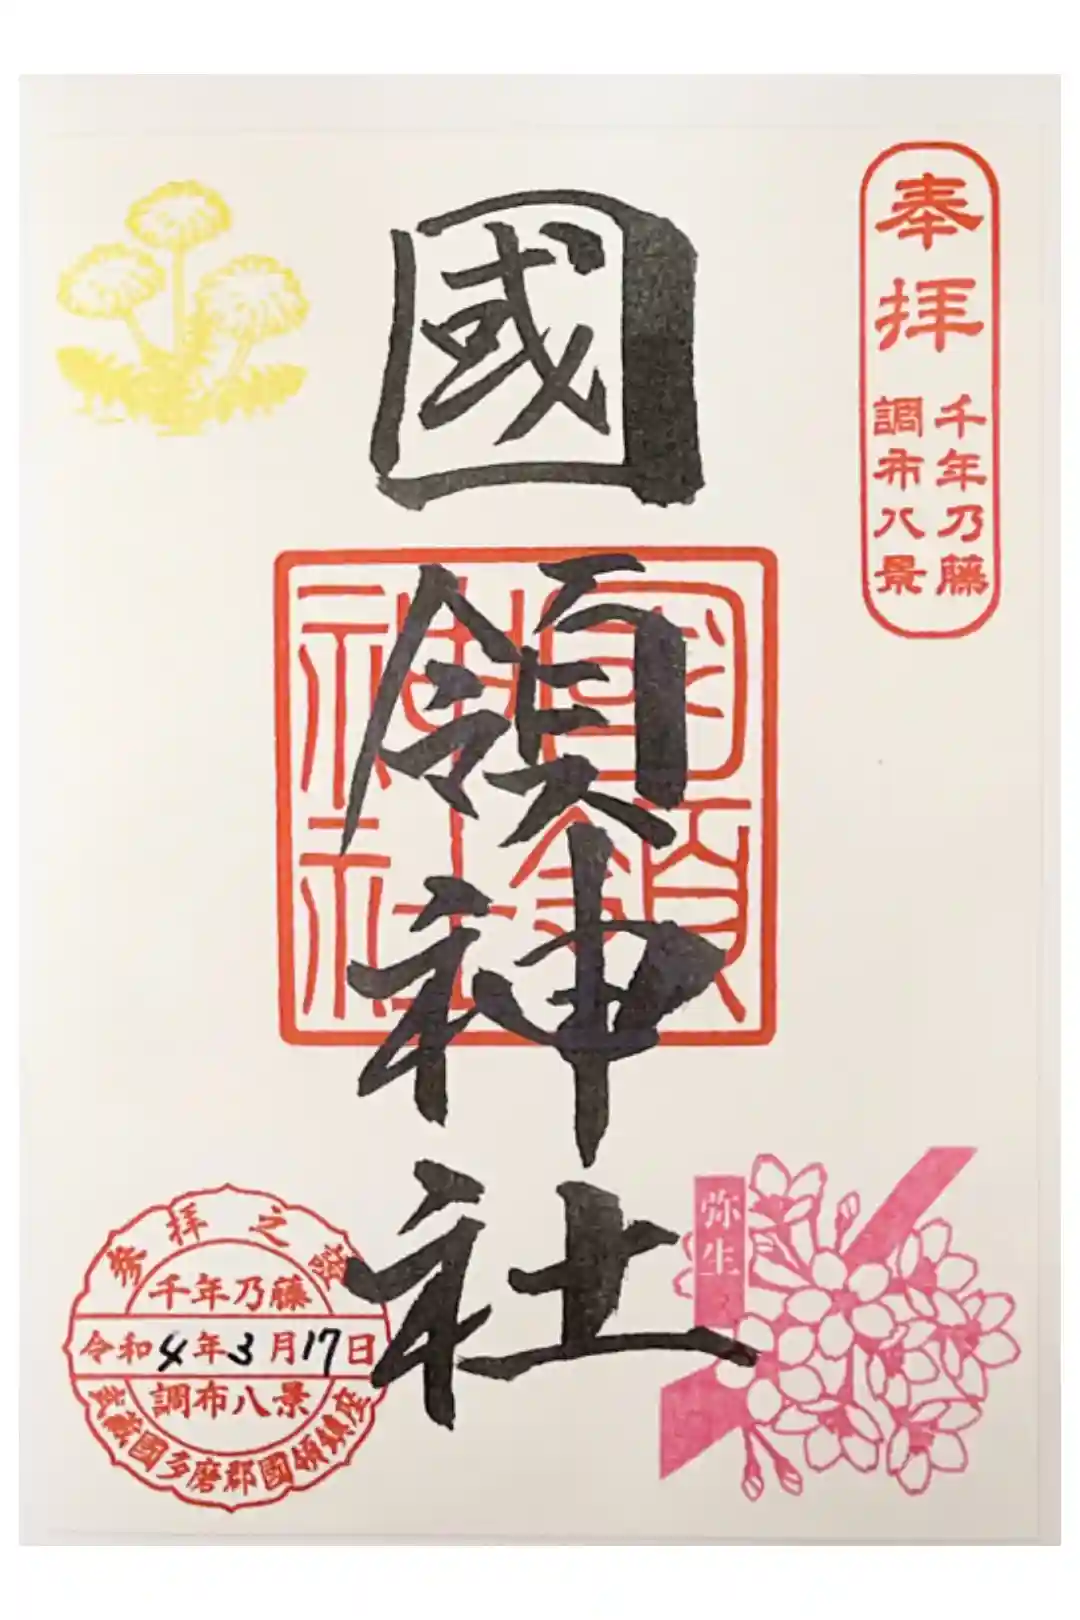 奉拝
千年乃藤
調布八景
國領神社
國領
神社
弥生
参拝之証
千年乃藤
令和4年3月17日
調布八景
武蔵國多磨郡國領鎮座